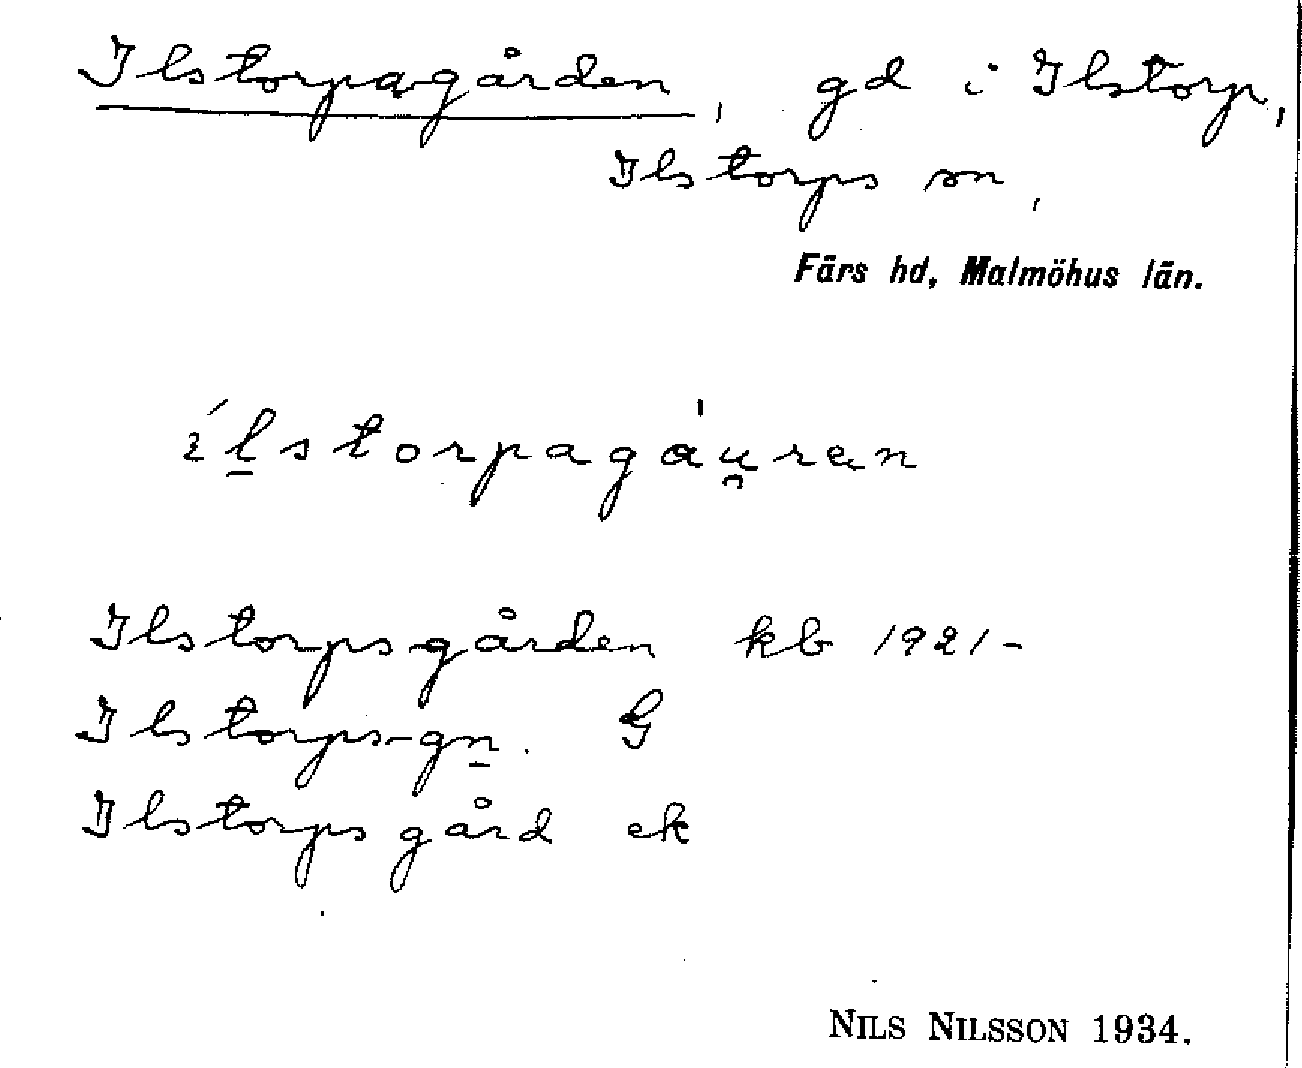 Ilstorpagården, gd i Ilstorp,
Ilstorps sn,
Färs hd, Malmöhus län.
ílstorpagáu̯ren
Ilstorpsgården kb 1921-
Ilstorps-gn. G
Ilstorps gård ek
NILS NILSSON 1934.